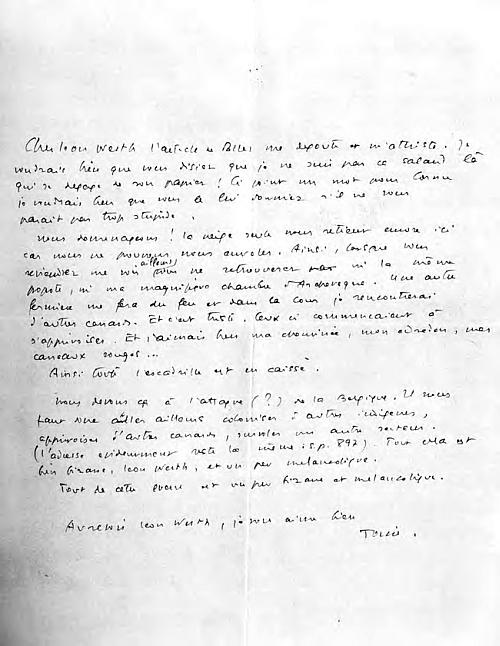 Cher Léon Werth l'article de me dégoûte et m'attriste. Je
voudrais bien que vous disiez que je ne suis pas ce salaud là
qui se dégage de son papier ! Ci joint un mot pour
je voudrais bien que vous le lui donniez s'il ne vous
paraît pas trop stupide.
Nous déménageons ! la neige seule nous retient encore ici
car nous ne pouvons nous envoler. Ainsi, lorsque vous
reviendrez me voir ailleurs vous ne retrouverez ni la même
popote, ni ma magnifique chambre d' Une autre
fermière me fera du feu et dans la cour je rencontrerai
d'autres canards. Et c'est triste. Ceux ci commençaient à
s'apprivoiser. Et j'aimais bien ma cheminée, mon édredon, mes
carreaux rouges...
Ainsi toute l'escadrille est en caisse.
Nous devons ça à l'attaque (?) de la Belgique. Il nous
faut donc aller ailleurs coloniser d'autres indigènes,
apprivoiser d'autres canards, un autre secteur.
(l'adresse évidemment reste la même : s.p. 897). Tout cela est
bien bizarre, Léon Werth, et un peu mélancolique.
Tout de cette guerre est un peu bizarre et mélancolique.
Au revoir Léon Werth, je vous aime bien